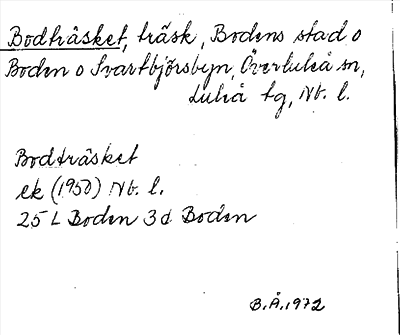 Bodträsket, träsk, Bodens stad o
Boden o Svartbjörsbyn, Överluleå sn,
Luleå tg, Nb. l.
Bodträsket
ek (1950) Nb. l.
25 L Boden 3 d Boden
B.Å. 1972